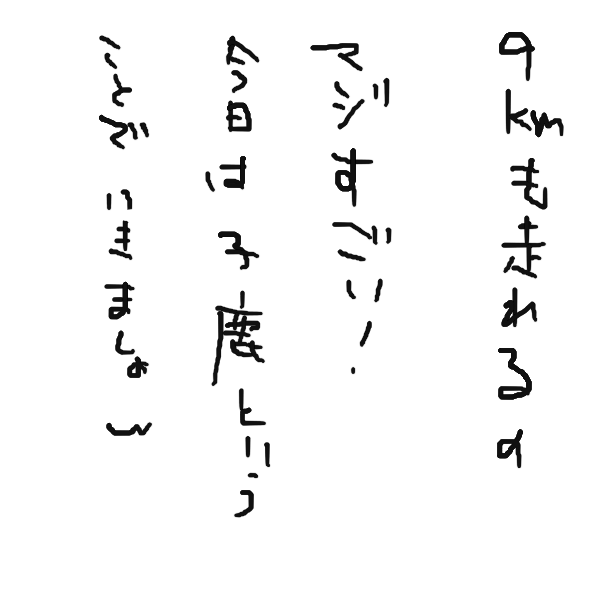 9kmも歩れるの
マジすごい!
今日は子鹿どう
ことでいきましょ